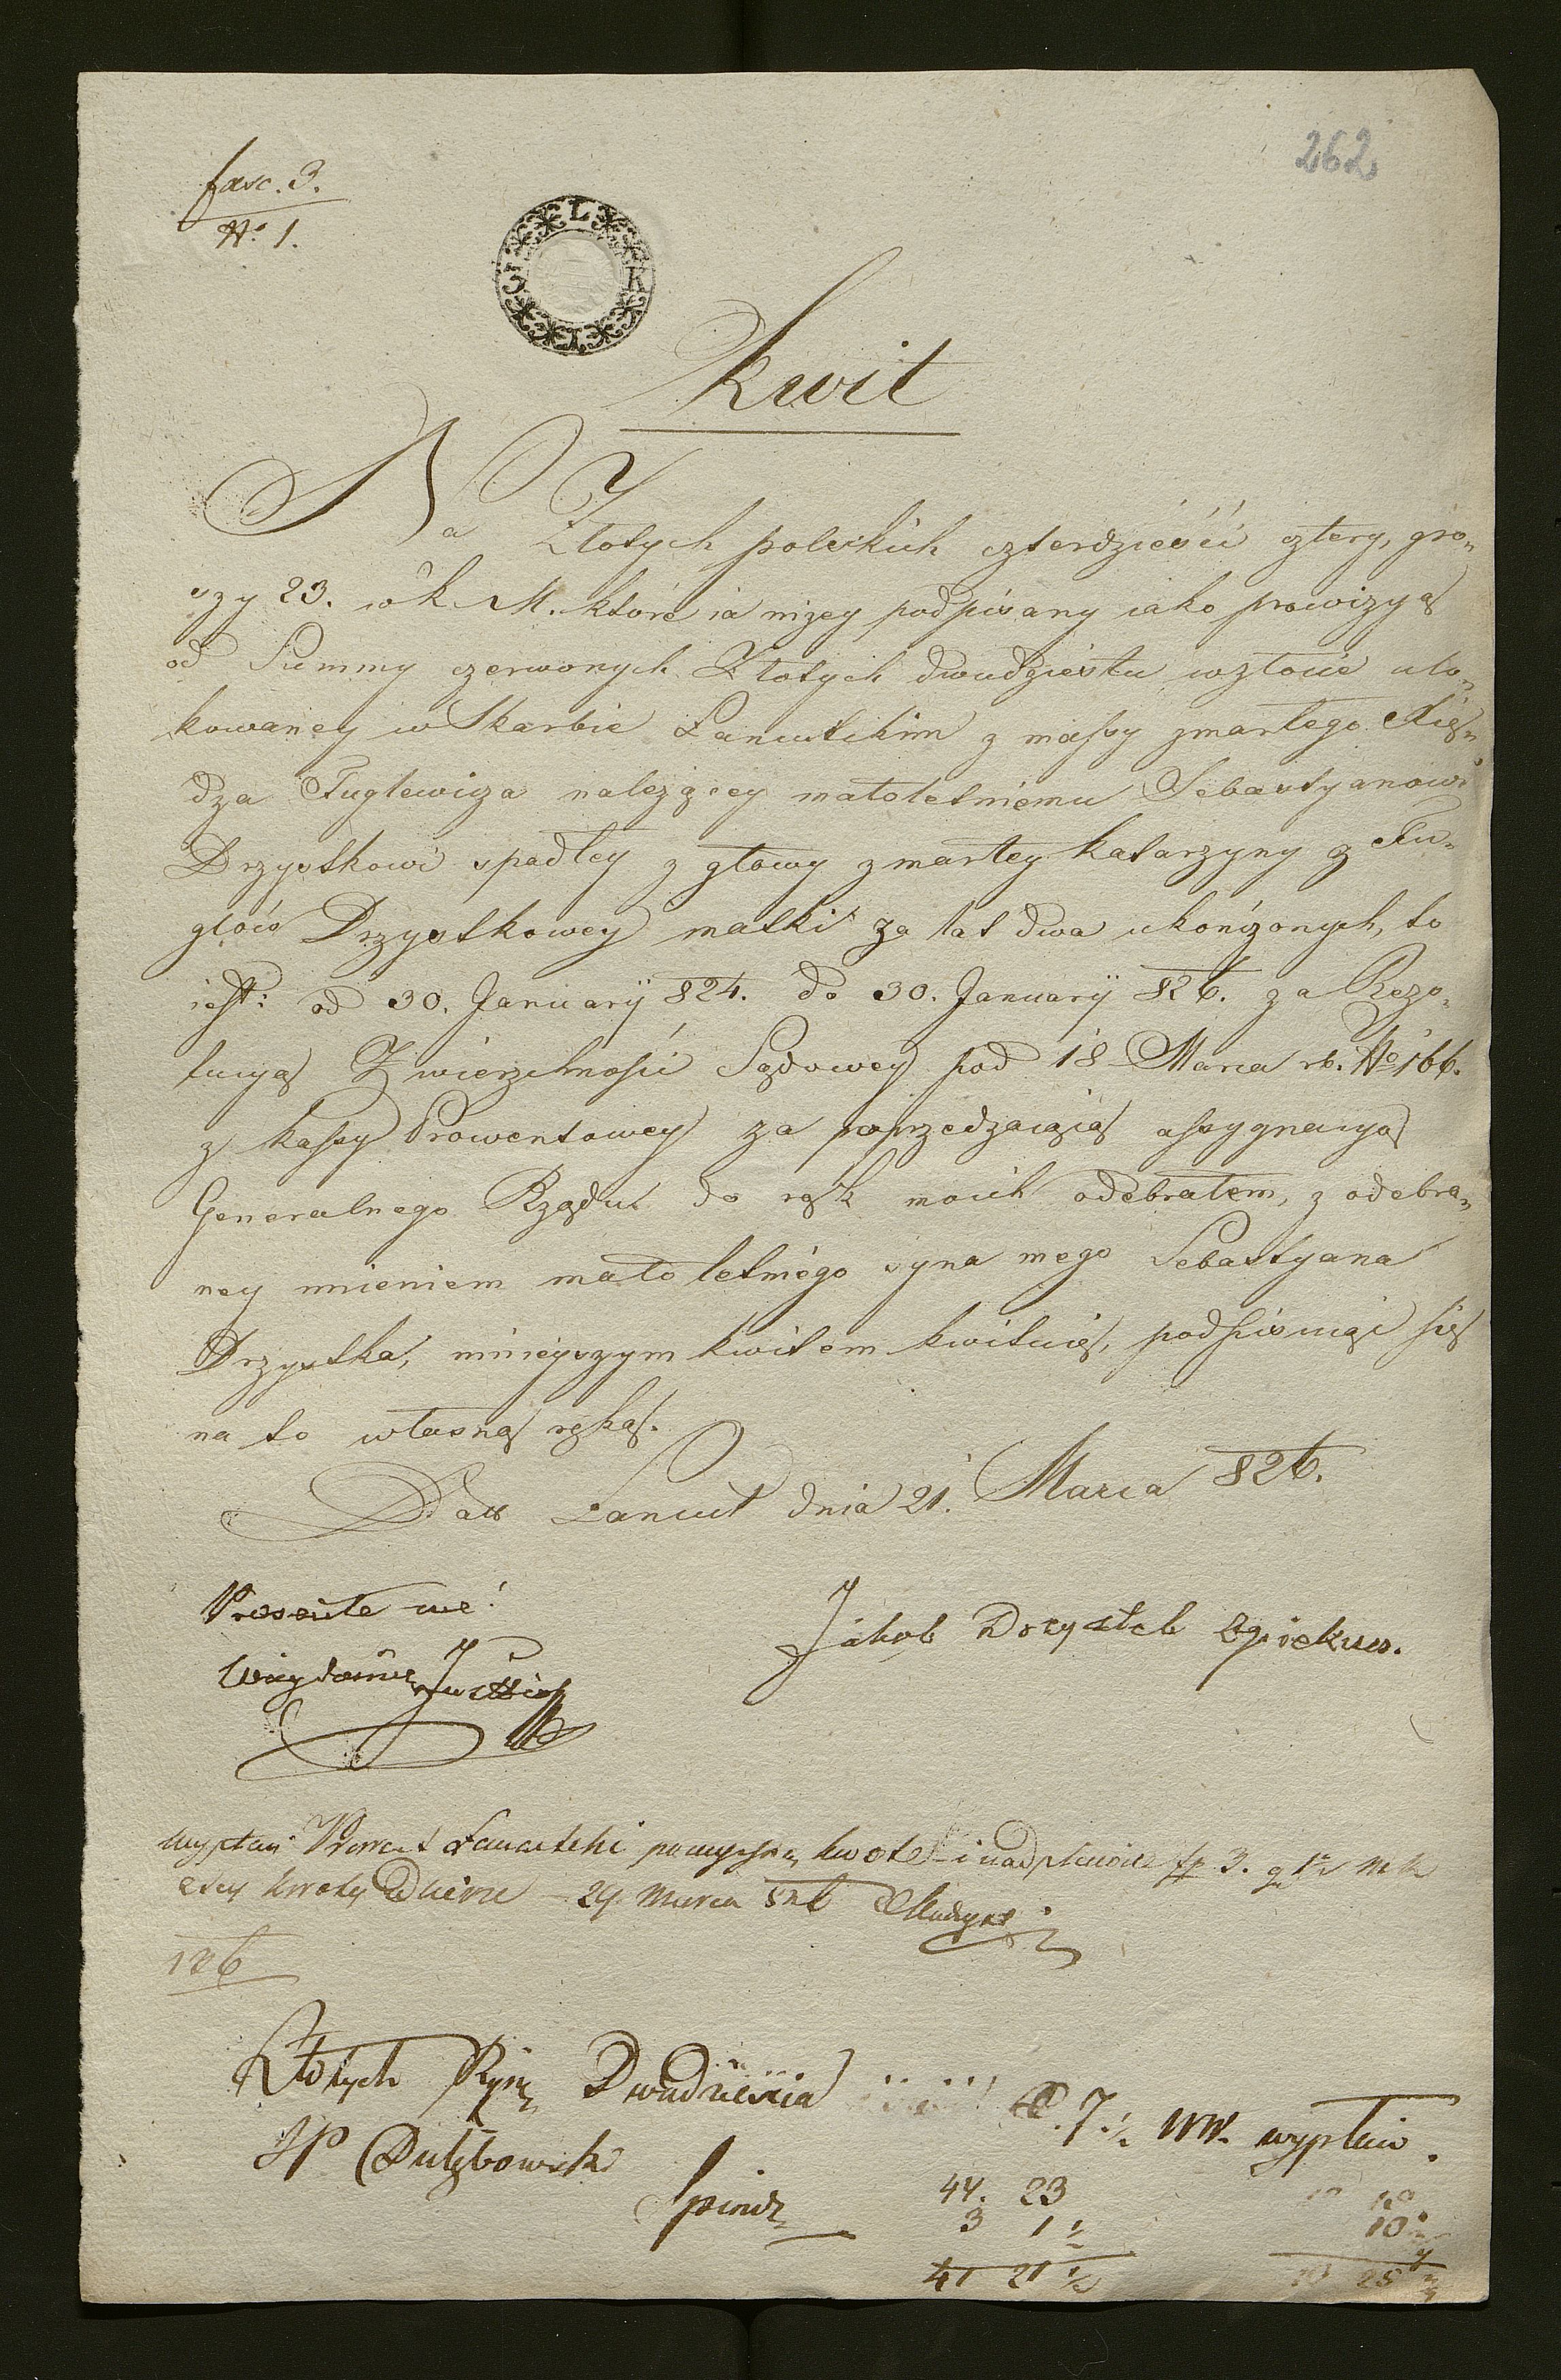 262
fasc. 3.
No 1.
L
3 K
I
Kwit
Na Złotych polskich czterdzieści cztery, gro„
szy 23. w K. M. które ia niżey podpisany iako prowizyą
od Summy czerwonych Złotych dwudziestu wzłocie ulo„
kowaney w Skarbie Łancutskim z massy zmarłego Xię„
dza Fuglewicza należącey małoletniemu Sebastyanowi
Drzystkowi spadłey z głowy zmarłey Katarzyny z Fu„
glów Drzystkowey matki za lat dwa ukończonych, to
iest: od 30. Januarÿ 824. do 30. Januarÿ 826. za Rezo„
lucyą Zwierzchności Sądowey pod 18 Marca rb. No 166.
z kassy Prowentowey za poprzedzaiącą assygnacyą
Generalnego Rządu do rąk moich odebrałem, z odebra„
ney imieniem małoletniego syna mego Sebastyana
Drzystka, ninieyszym kwitem kwituię, podpisuiąc się
na to własną ręką.
Datt Łancut dnia 21. Marca 826.
Presente me!
Jakob Drzystek Opiekun.
Wypłaci Prowent Łancutski kwotę i 3. g 1½ MK
kwoty 29. Marca 826
126
Złotych Ryn Dwadzieścia 7.½ WW. wypłacio.
JP
44. 23
3 1½
41 21½
10
25